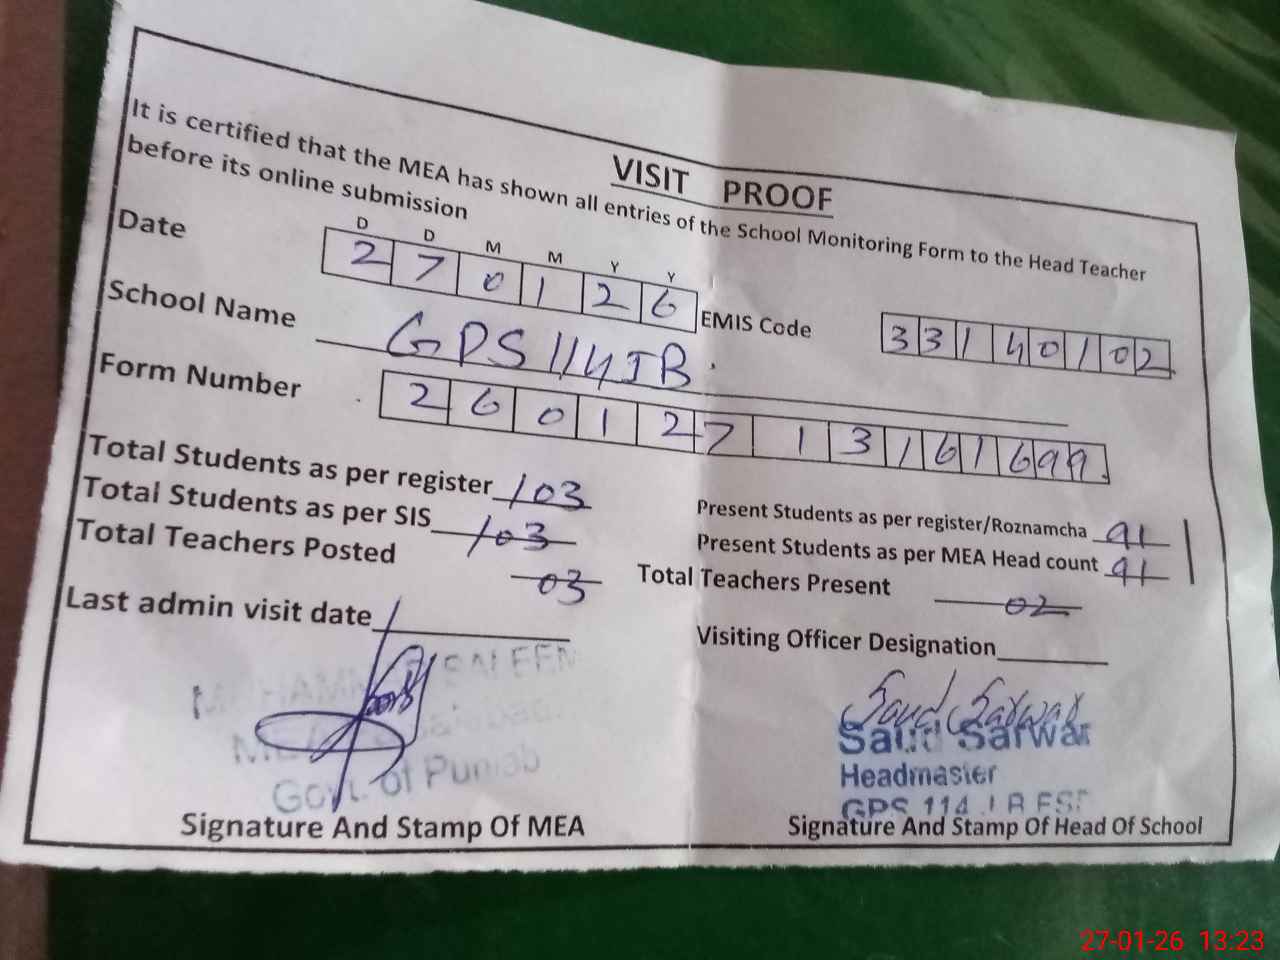 VISIT PROOF
It is certified that the MEA has shown all entries of the School Monitoring Form to the Head Teacher
before its online submission
D D M M Y Y
Date 27 01 26 EMIS Code 33140102
School Name GPS 114 JB
Form Number
Total Students as per register 103
Total Students as per SIS 103
Total Teachers Posted 03
Present Students as per register/Roznamcha 91
Present Students as per MEA Head count 91
Total Teachers Present 02
Last admin visit date
Visiting Officer Designation
SALEEM
Govt. of Punjab
Signature And Stamp Of MEA
Saud Sarwar
Saud Sarwar
Headmaster
GPS 114 J.B
Signature And Stamp Of Head Of School
27-01-26 13:23